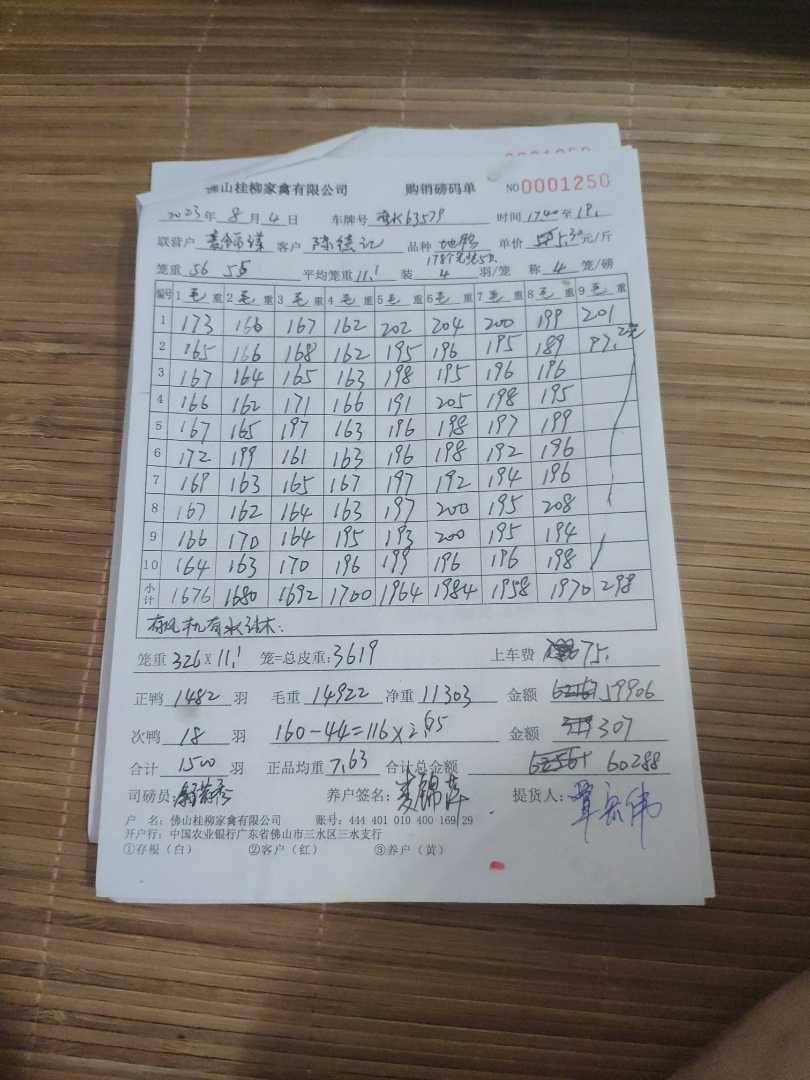 佛山桂柳家禽有限公司 购销磅码单 NO 0001250
2023年 8月 4日 车牌号 63579 时间 1740至 18.
联营户 客户 陈绩记 品种 地鸭 单价 5.30元/斤
笼重 56 55 平均笼重 11.1 装 4 羽/笼 称 4 笼/磅
编号 1毛重 2毛重 3毛重 4毛重 5毛重 6毛重 7毛重 8毛重 9毛重
1 173 166 167 162 202 204 200 199 201
2 165 166 168 162 195 196 195 189 97.2笼
3 167 164 165 163 198 195 196 196
4 166 162 171 166 191 205 198 195
5 167 165 197 163 196 198 197 199
6 172 199 161 163 196 198 192 196
7 169 163 165 167 197 192 194 196
8 167 162 164 163 197 200 195 208
9 166 170 164 195 193 200 195 194
10 164 163 170 196 199 196 196 198
小计 1676 1680 1692 1700 1964 1984 1958 1970 298
笼重 326 X 11.1 笼=总皮重:3619 上车费 75.
正鸭 1482 羽 毛重 14922 净重 11303 金额 59906
次鸭 18 羽 160-44=116×2.65 金额 307
合计 1500 羽 正品均重 7.63 合计总金额 60288
司磅员: 养户签名: 麦锦 提货人: 覃 伟
户 名: 佛山桂柳家禽有限公司 账号: 444 401 010 400 169 29
开户行: 中国农业银行广东省佛山市三水区三水支行
①存根（白） ②客户（红） ③养户（黄）